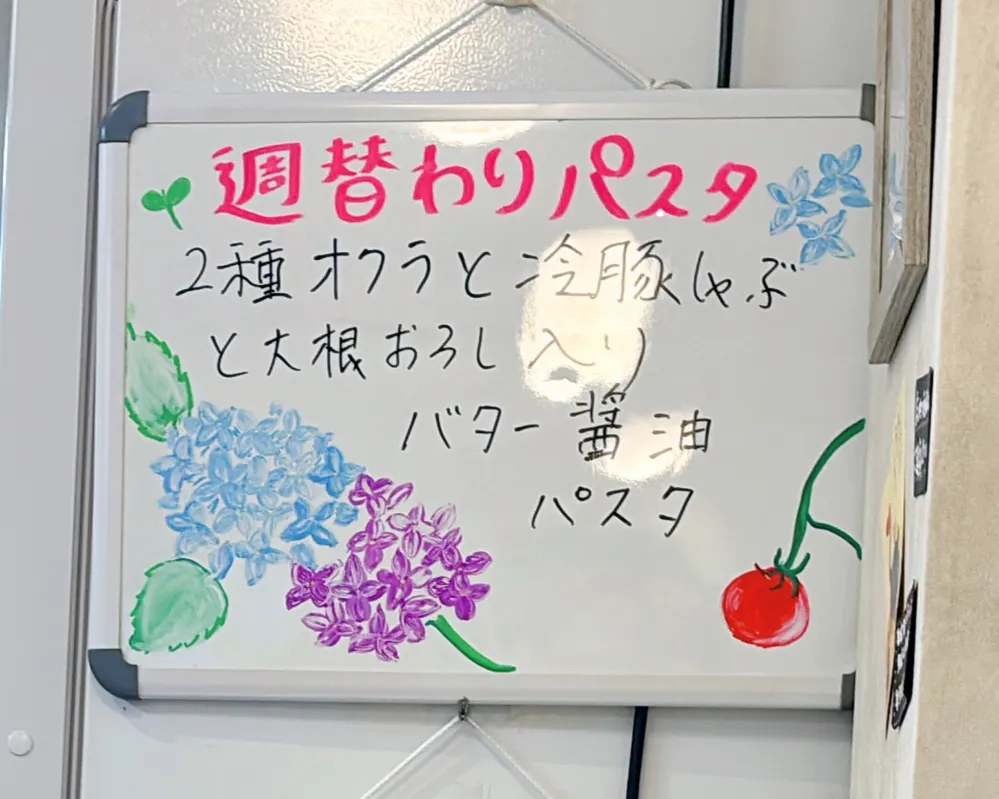 週替わりパスタ
2種オクラと冷豚しゃぶ
と大根おろし入り
バター醤油
パスタ